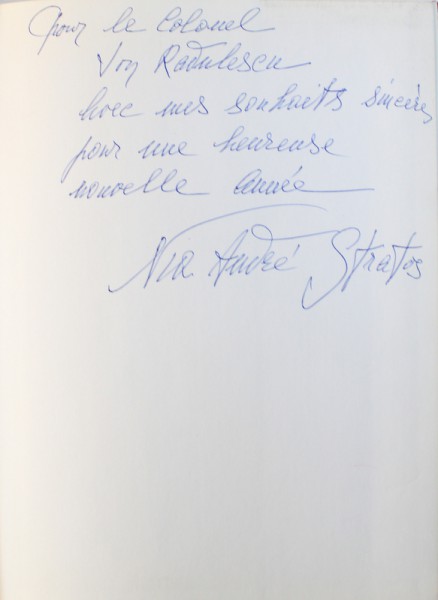 pour le Colonel
Von Radulescu
avec mes souhaits sincères
pour une heureuse
nouvelle année
André Stratos